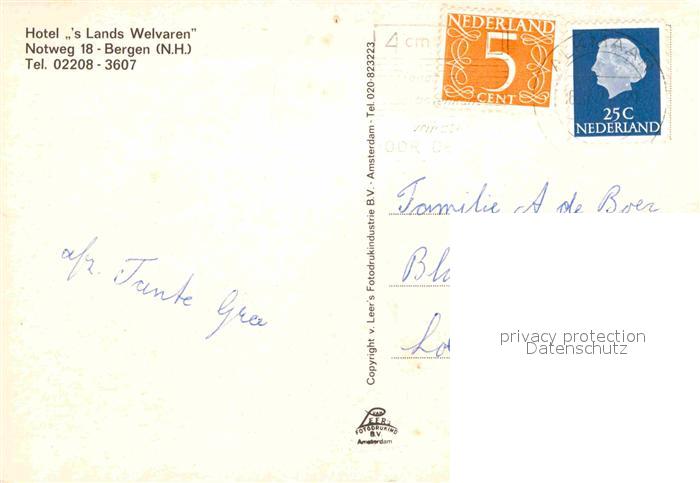 Hotel „'s Lands Welvaren"
Notweg 18 - Bergen (N.H.)
Tel. 02208 - 3607
4 cm
NEDERLAND
5
CENT
25 C
NEDERLAND
Copyright v. Leer's Fotodrukindustrie B.V. - Amsterdam - Tel. 020-823223
Familie A de Boer
afz. Tante Gree
privacy protection
Datenschutz
VAN
LEER's
FOTODRUKIND
B.V.
Amsterdam